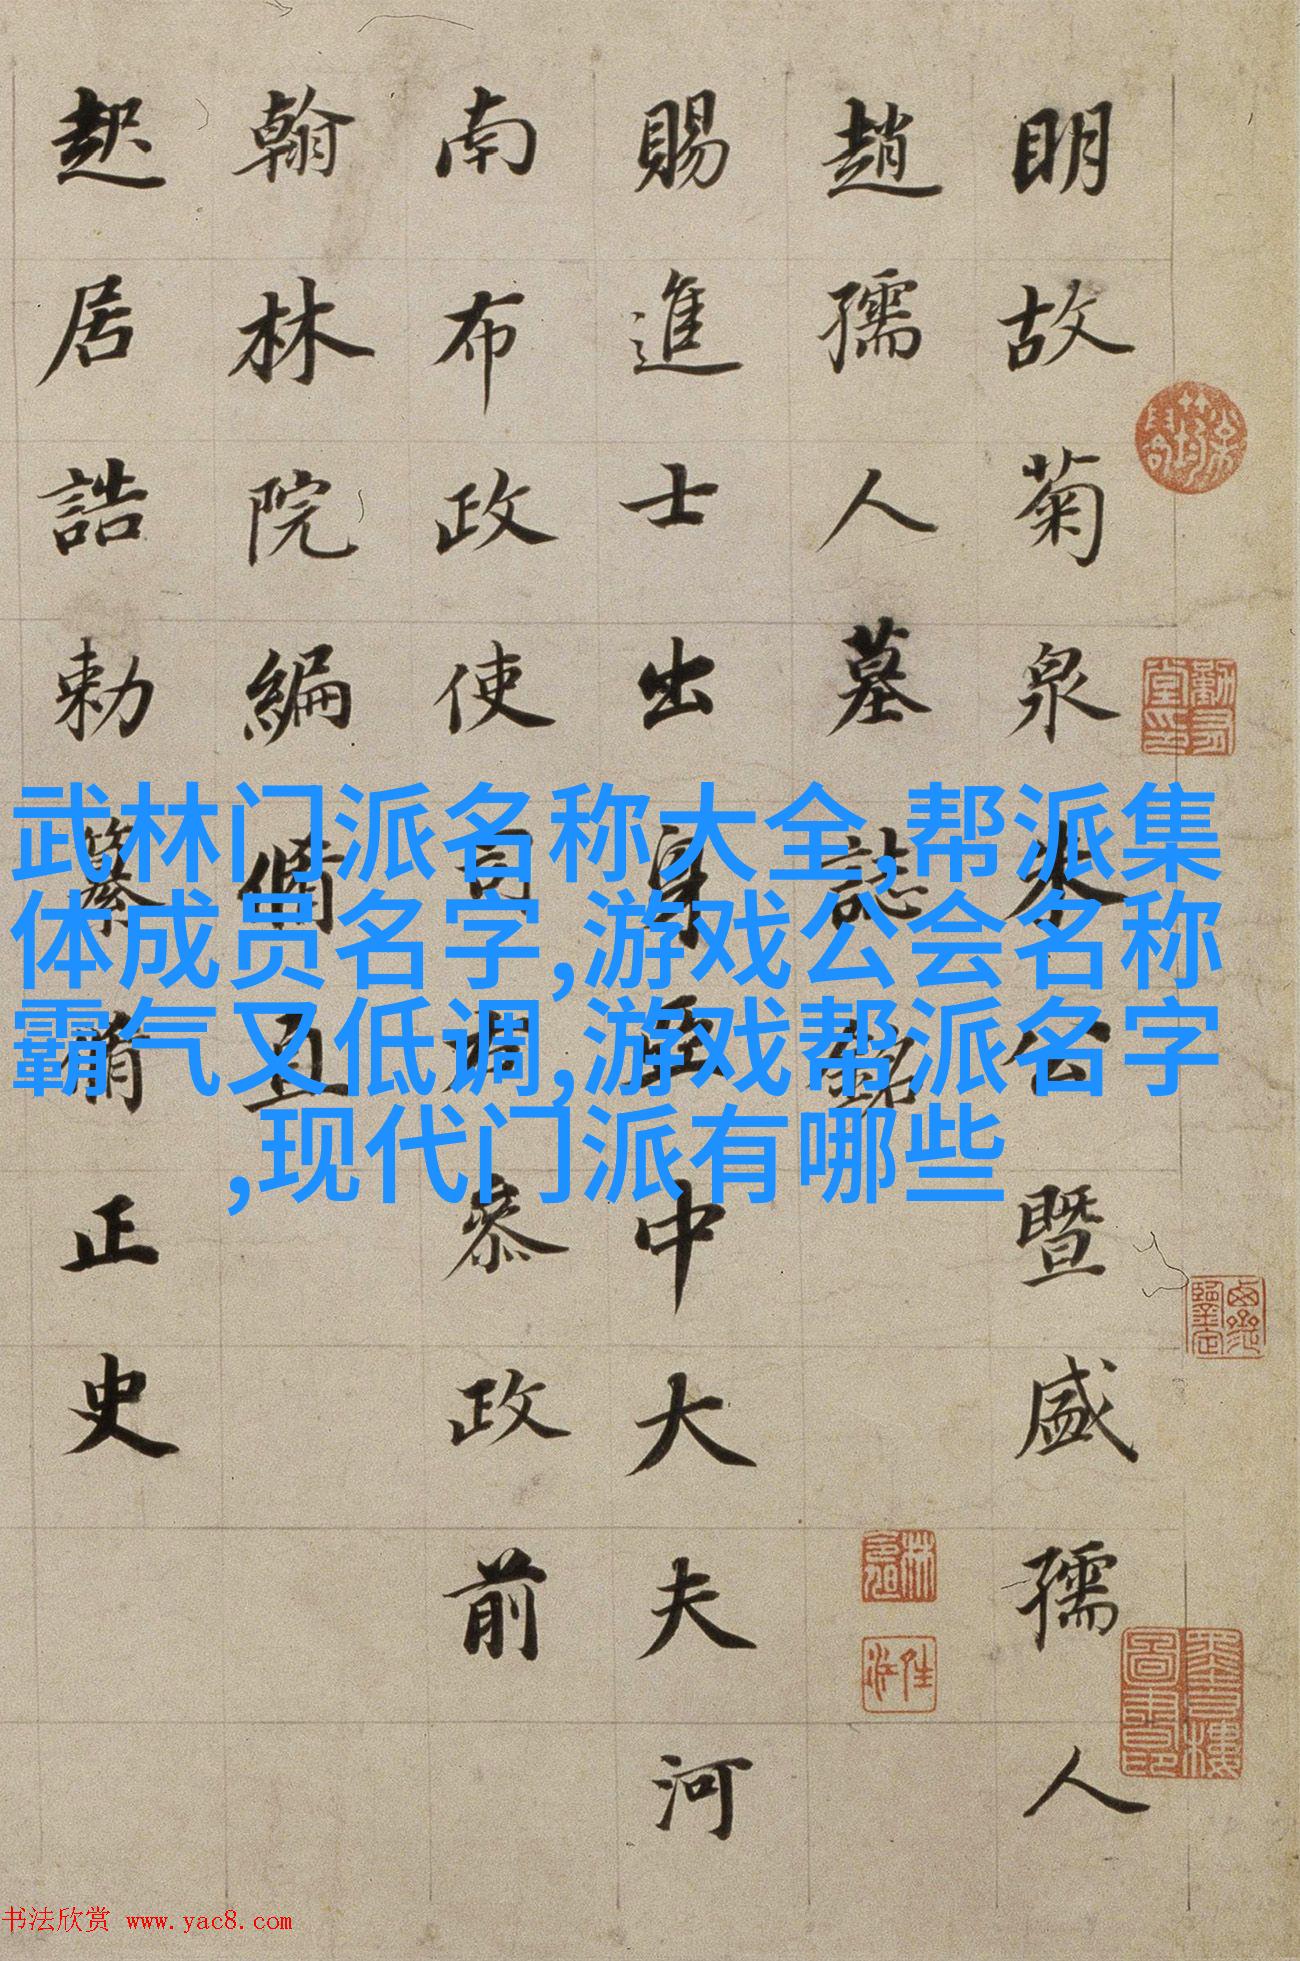 明故菊泉朱公暨盛孺人
趙孺人墓誌銘
賜進士出身亞中大夫河
南布政使司右叅政前
翰林院編脩直
起居誥勅纂脩正史
武林门派名称大全,帮派集
体成员名字,游戏公会名称
霸气又低调,游戏帮派名字
,现代门派有哪些
书法欣赏 www.yac8.com